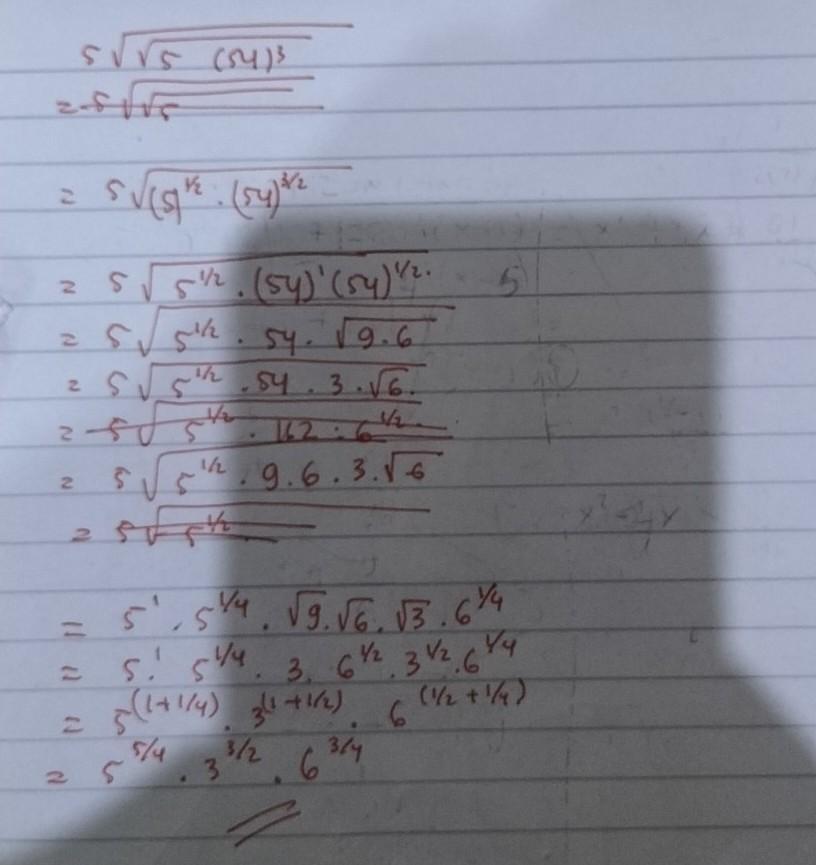 5√(√5 (54)³)
= 5√(√5
= 5√((5)^1/2 . (54)^3/2)
= 5√(5^1/2 . (54)^1 (54)^1/2.)
= 5√(5^1/2 . 54 . √9.6)
= 5√(5^1/2 . 54 . 3 . √6.)
= 5√(5^1/2 . 162 . 6^1/2)
= 5√(5^1/2 . 9.6 . 3.√6)
= 5√(5^1/2
= 5^1 . 5^1/4 . √9.√6 . √3 . 6^1/4
= 5.^1 5^1/4 . 3. 6^1/2 . 3^1/2 . 6^1/4
= 5^(1+1/4) . 3^(1+1/2) . 6^(1/2+1/4)
= 5^5/4 . 3^3/2 . 6^3/4